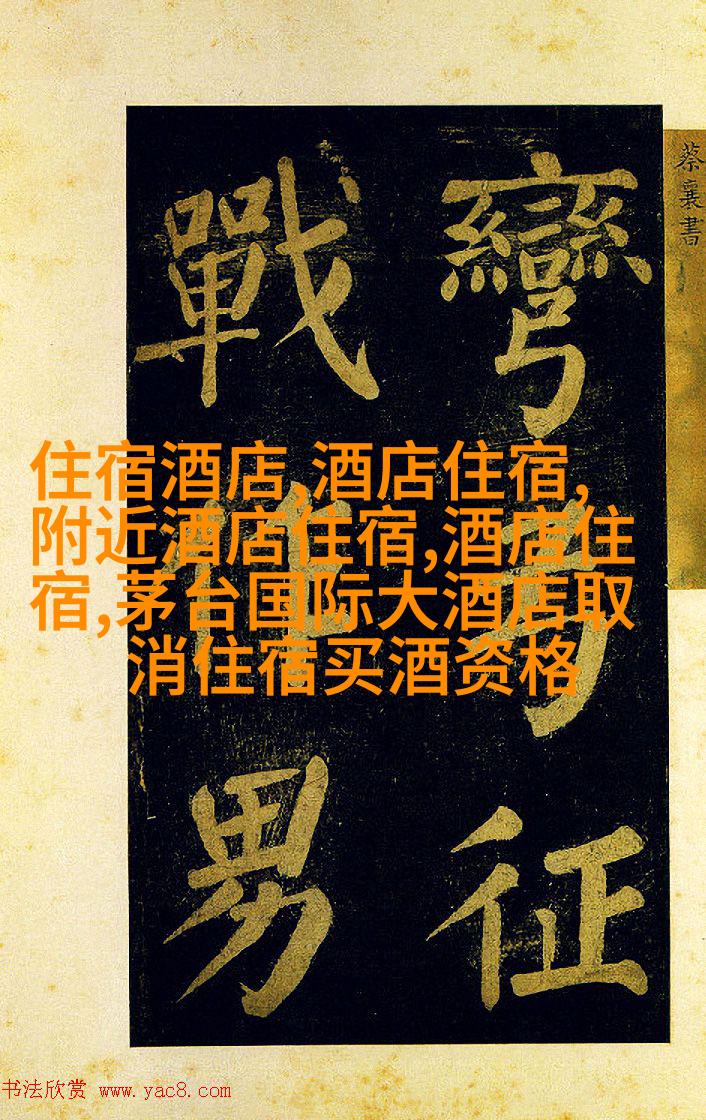 蔡襄書
彎弓征
戰作男
住宿酒店,酒店住宿,
附近酒店住宿,酒店住
宿,茅台国际大酒店取
消住宿买酒资格
书法欣赏 www.yac8.com